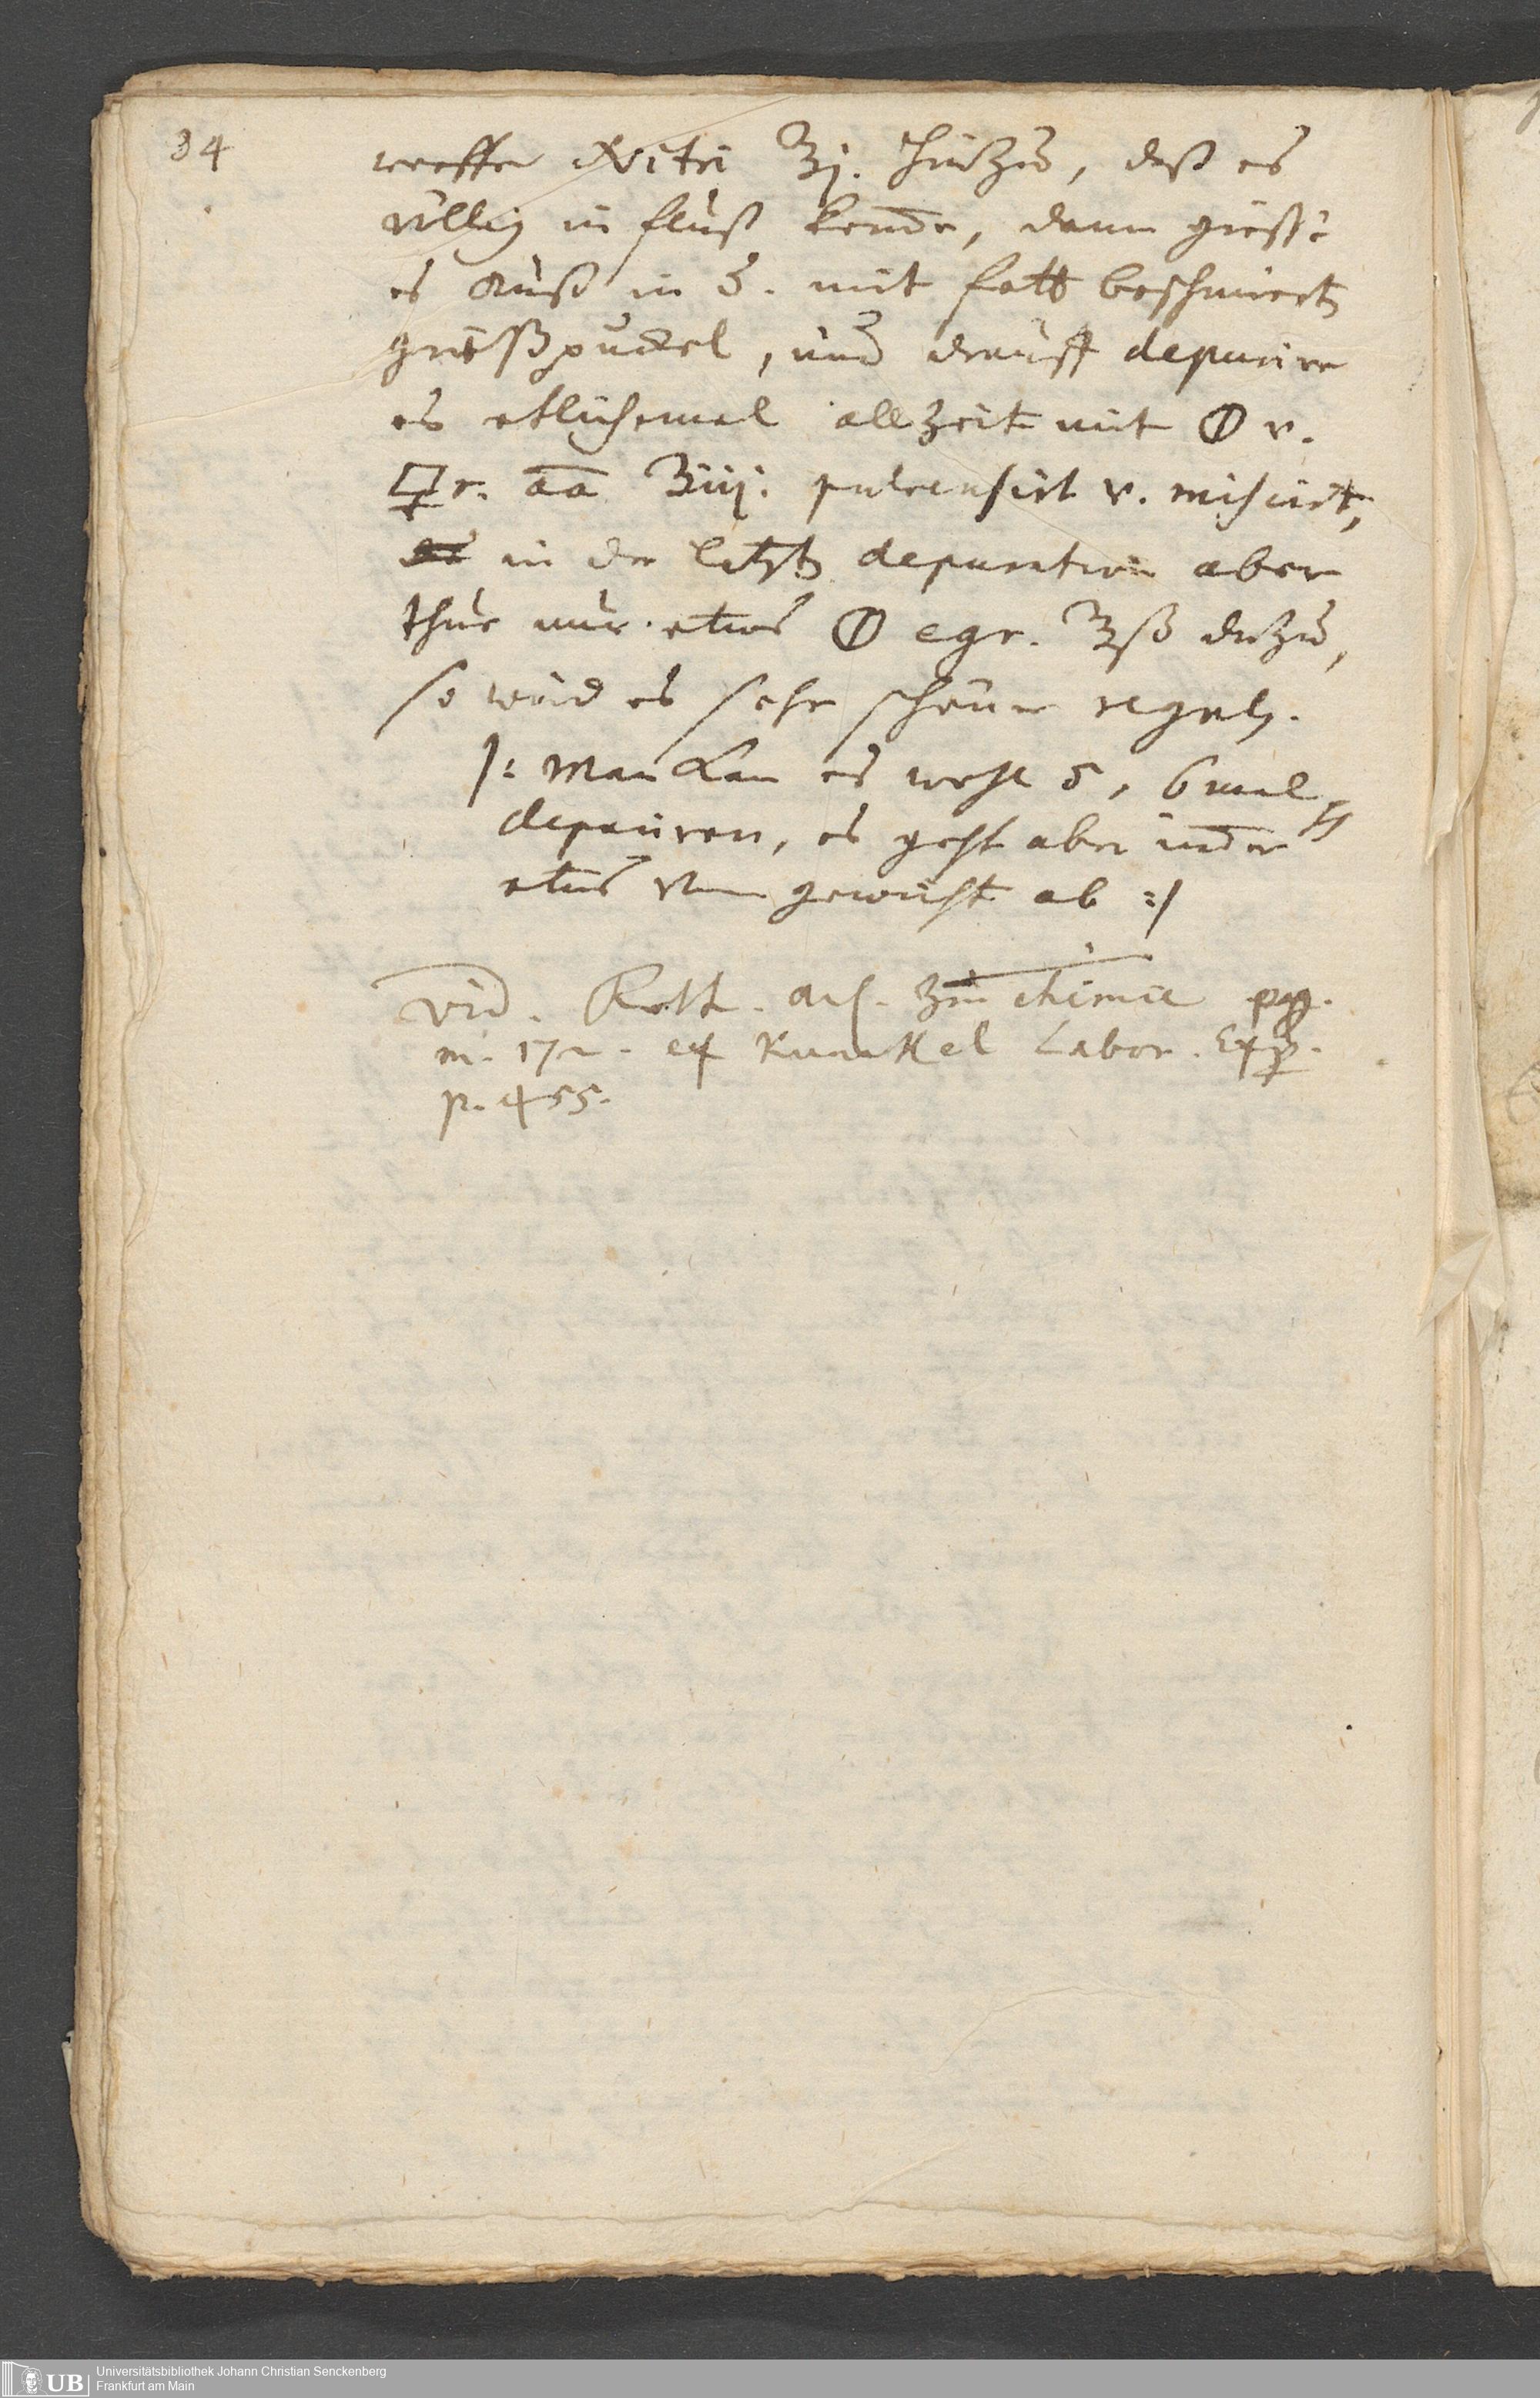 34
werffe Nitri ℥j. hinzu, daß es
völlig in fluß komme, dann gieße
es auß in 3. mit fett beschmiert
gießpuckel, und drauff depurire
es etlichemal allzeit mit 🜕 v.
🜿r. aa ℥iiij. pulverisirt v. miscirt,
in der letzt depuration aber
thue nur etwas 🜕 egr. ℥ß dazu,
so wird es sehr schöner regul.
/: Man kan es wohl 5, 6 mal
depuriren, es geht aber immer
etwas vom gewicht ab :/
vid. Roth. anl. zur chimie pag.
m. 172. et Kunckel Labor. Exp.
p. 455.
UB Universitätsbibliothek Johann Christian Senckenberg
Frankfurt am Main